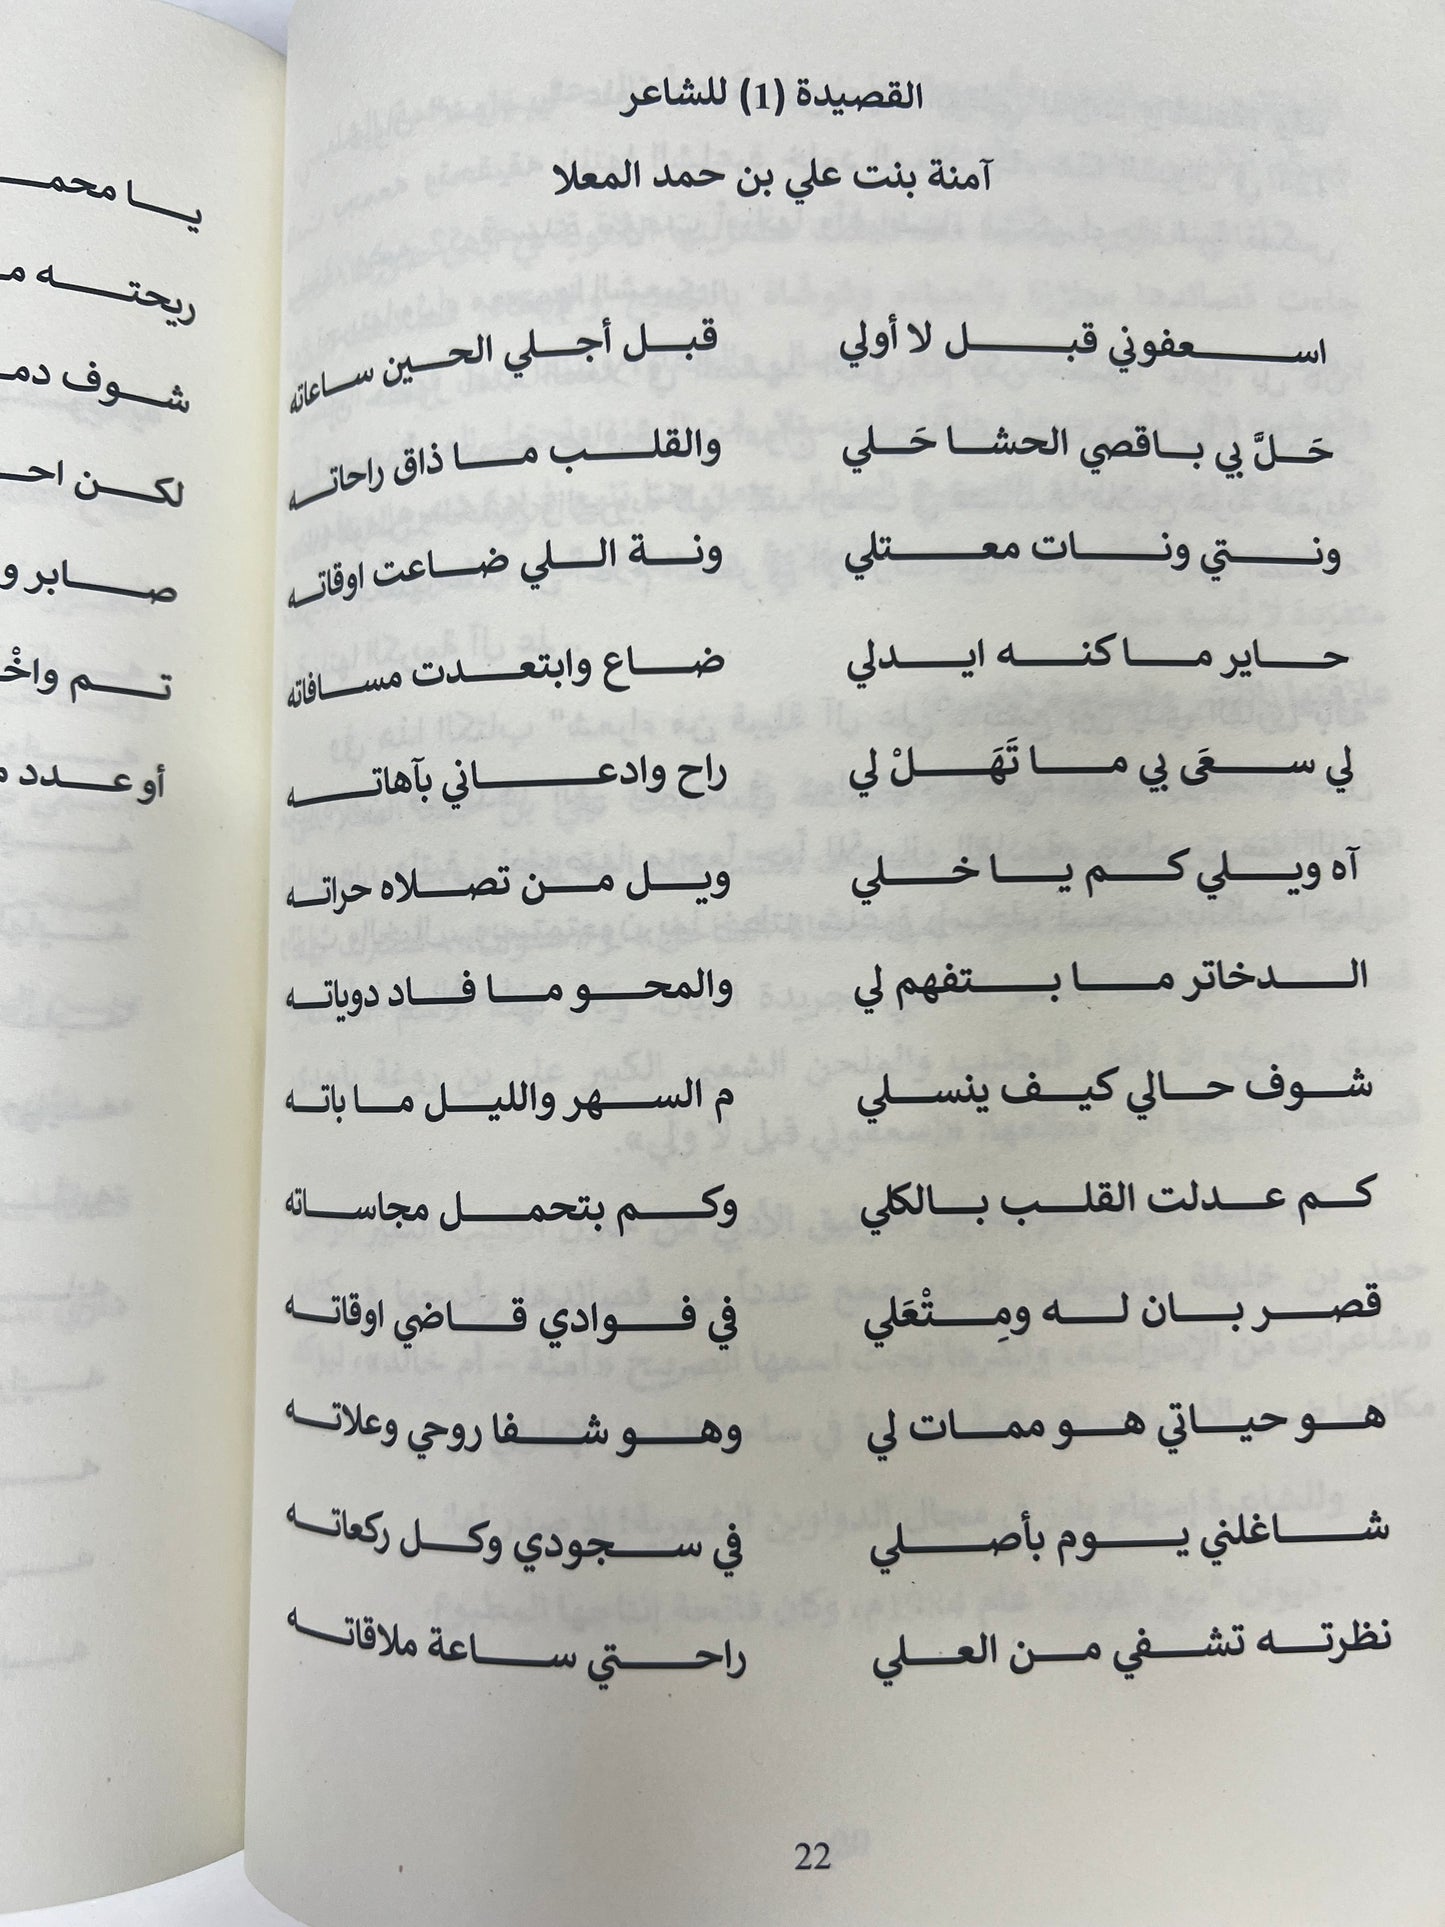 القصيدة (1) للشاعر
آمنة بنت علي بن حمد المعلا
اسعفوني قبل لا أولي قبل أجلي الحين ساعاته
حَلَّ بي باقصي الحشا حَلي والقلب ما ذاق راحاته
ونتي ونات معتلي ونة اللي ضاعت اوقاته
حاير ما كنه ايدلي ضاع وابتعدت مسافاته
لي سعَى بي ما تَهَلْ لي راح وادعاني بآهاته
آه ويلي كم يا خلي ويل من تصلاه حراته
الدخاتر ما بتفهم لي والمحو ما فاد دوياته
شوف حالي كيف ينسلي م السهر والليل ما باته
كم عدلت القلب بالكلي وكم بتحمل مجاساته
قصر بان له ومِتْعَلي في فوادي قاضي اوقاته
هو حياتي هو ممات لي وهو شفا روحي وعلاته
شاغلني يوم بأصلي في سجودي وكل ركعاته
نظرته تشفي من العلي راحتي ساعة ملاقاته
22
يا محمـ
ريحته
شوف
لكن
صابر
تم
أو عدد